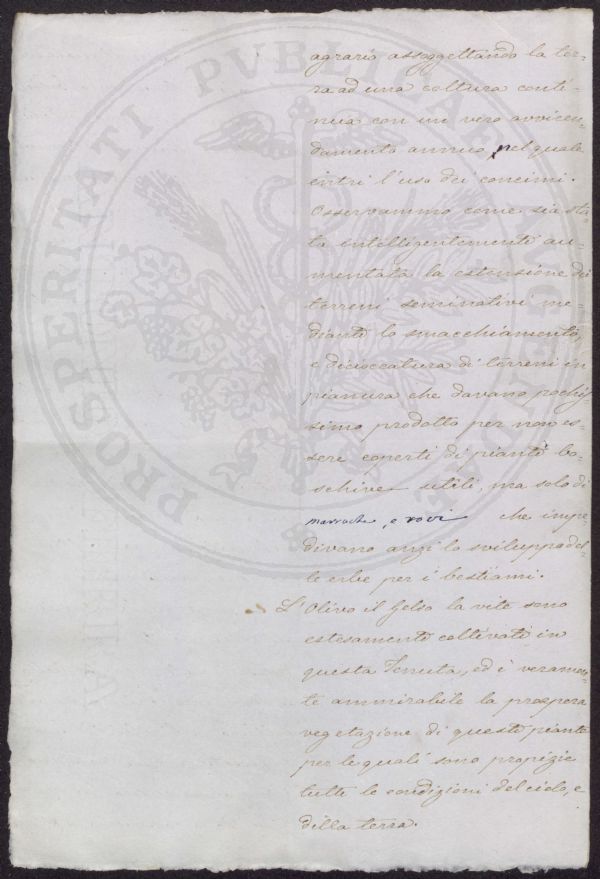 PROSPERITATI PVBLICAE AVGENDAE
agrario assoggettando la ter-
ra ad una coltura conti-
nua con un vero avvicen-
damento annuo, nel quale
entri l'uso dei concimi.
Osservammo come sia sta-
ta intelligentemente au-
mentata la estensione dei
terreni seminativi me-
diante lo smacchiamento,
e decioccatura di terreni in
pianura che davano pochis
simo prodotto per non es
sere coperti di piante bo-
schive utili, ma solo di
marruche, e rovi che impe-
divano anzi lo sviluppo del-
le erbe per i bestiami.
L'Olivo il Gelso la vite sono
estesamente coltivati in
questa Tenuta, ed è veramen-
te ammirabile la prospera
vegetazione di queste piante
per le quali sono propizie
tutte le condizioni del cielo, e
della terra.